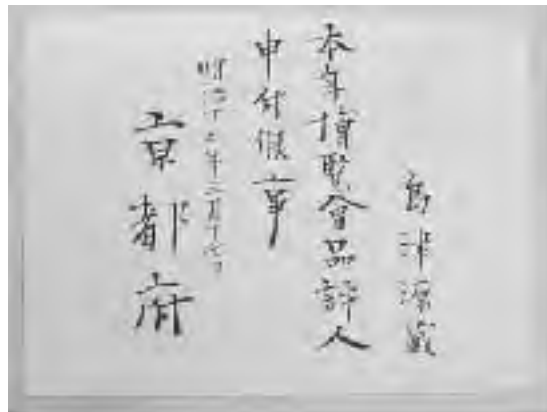 島津源蔵
本年博覧會品評人
申付候事
明治十二年
京都府